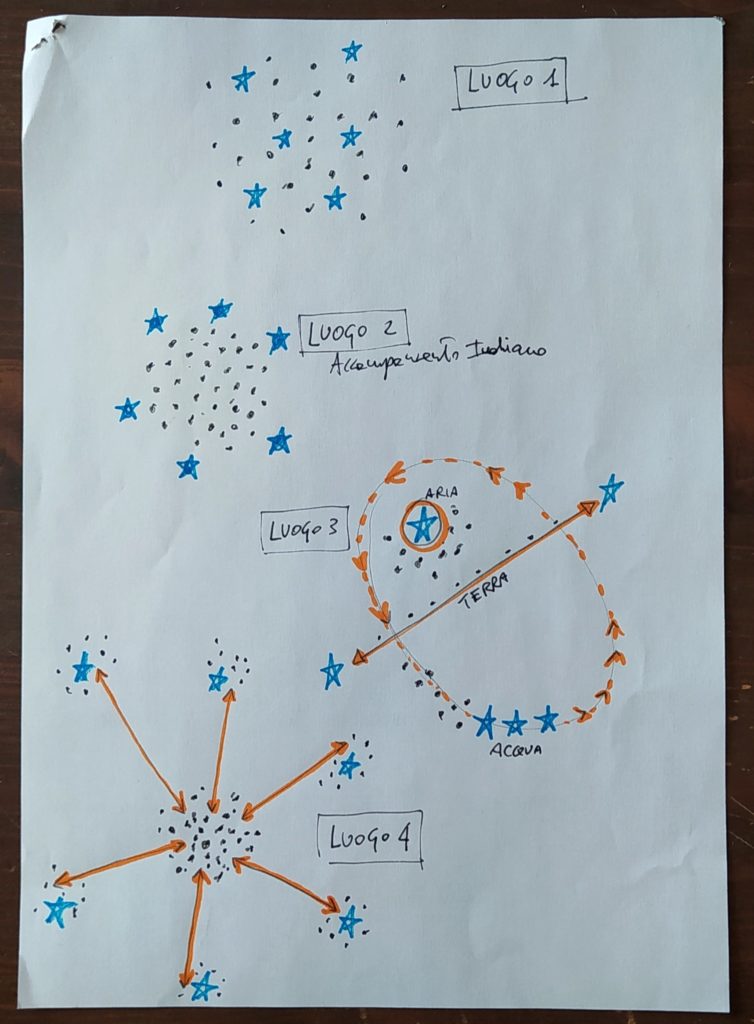 LUOGO 1
LUOGO 2
Accampamento Indiano
ARIA
LUOGO 3
TERRA
ACQUA
LUOGO 4